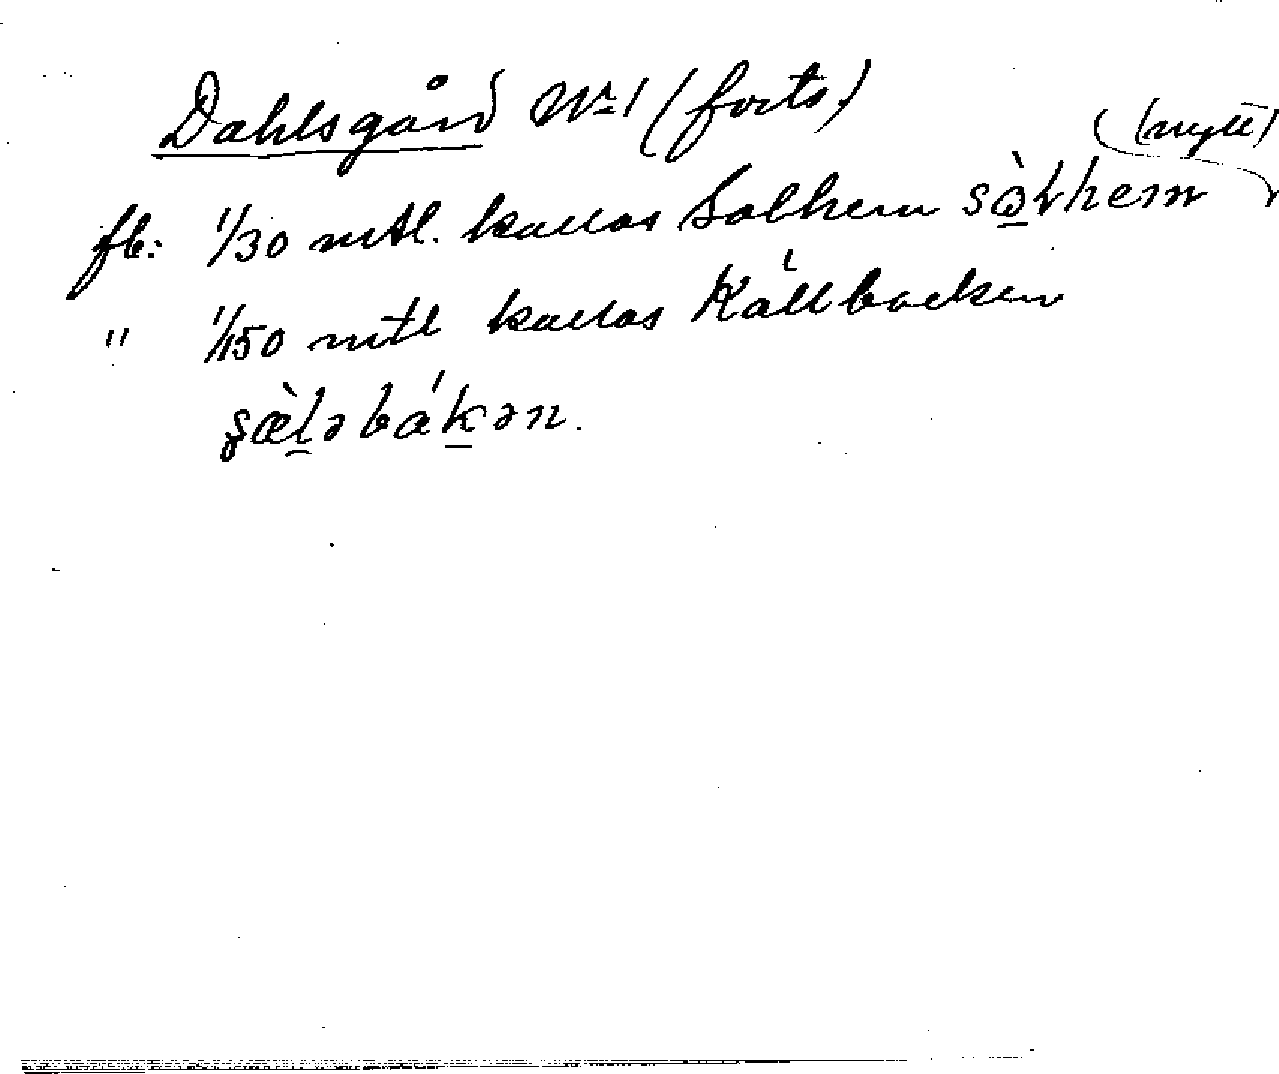 Dahlsgård No 1 (forts.)
(nytt)
fb: 1/30 mtl. kallas Solhem sòlhem
" 1/150 mtl kallas Källbacken
şæ̀ləbákən.